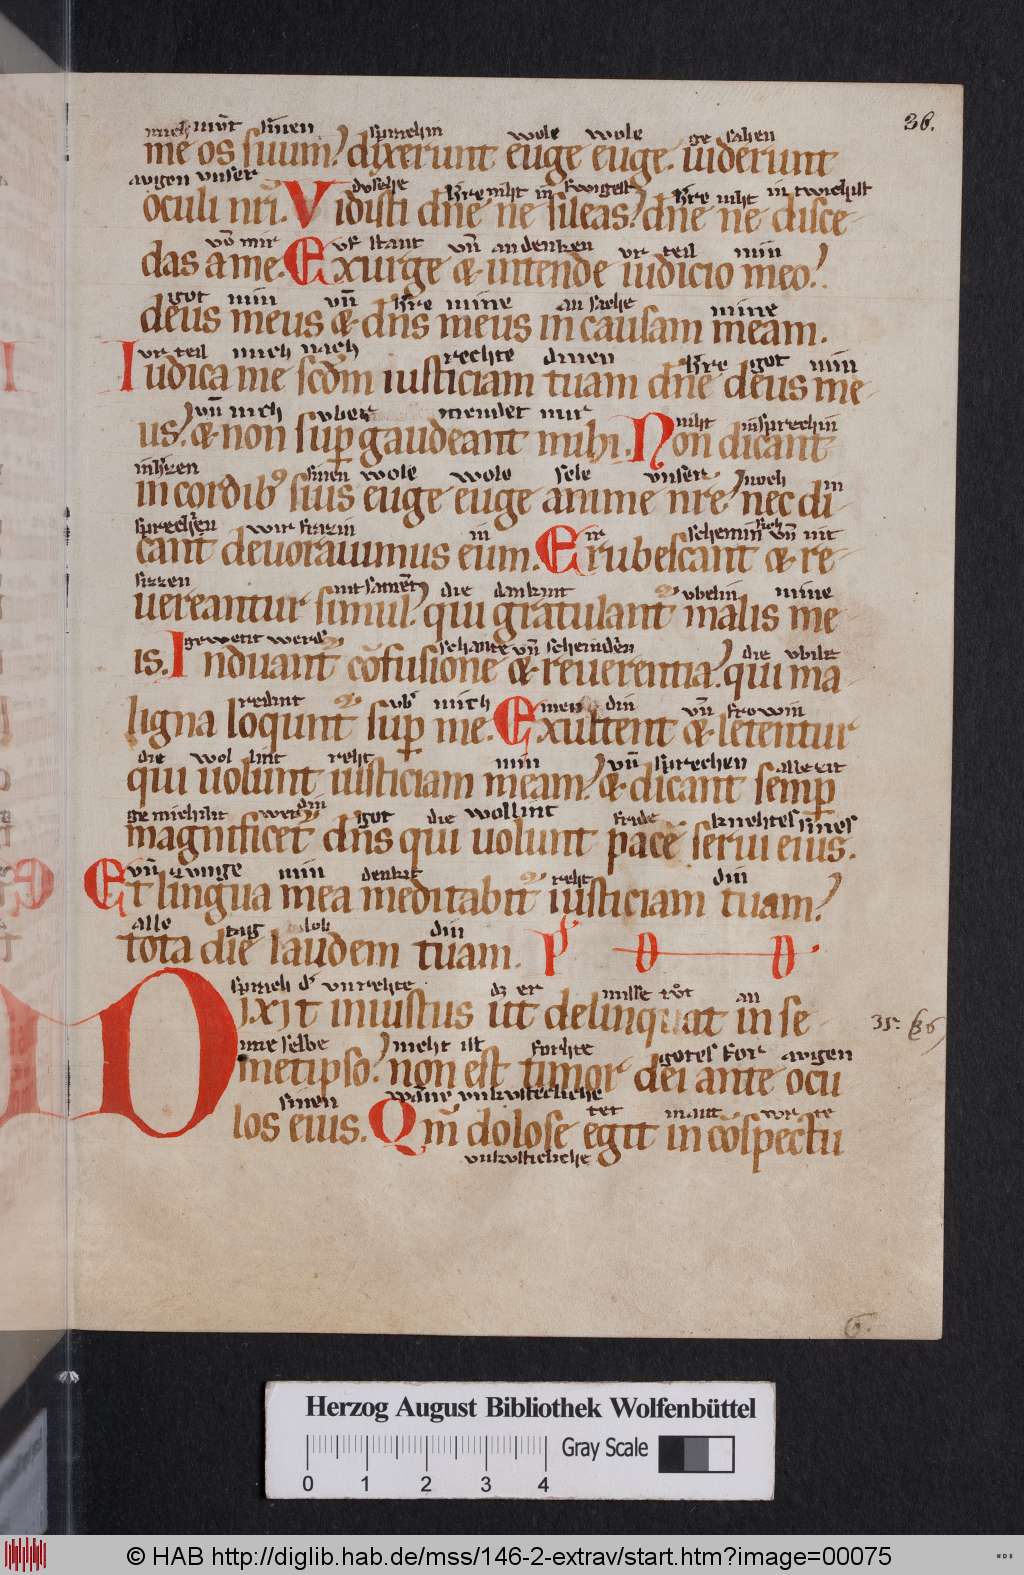 36.
mich munt sinen sprachin wole wole ge sahen
me os suum. dixerunt euge euge. uiderunt
augen unser du sehe herre niht in swigest herre niht in twichist
oculi nr̄i. Vidisti dn̄e ne sileas. dn̄e ne disce-
vō mir vf stant vn̄ an denken vr teil min
das a me. Exurge & intende iudicio meo.
got min vn̄ herre mine an sache mine
deus meus & dn̄s meus in causam meam.
vr teil mich nach rechte dinen herre got min
Iudica me sc̄dm iusticiam tuam dn̄e deus me-
vn̄ nich vber mendet mir niht insprechin
us. & non sup gaudeant mihi. Non dicant
sinen wole wole sele unser noch in
in cordib; suis euge euge anime nr̄e. nec di-
wir in ir schemin sich vn̄ nit
cant deuorauimus eum. Erubescant & re-
die vbelin mine
uereantur simul. qui gratulant̉ malis me-
schante vn̄ die vbile
is. Induant̉ cōfusione & reuerentia. qui ma-
redint vb̉ mich din vn̄ frowin
ligna loqunt̉ sup me. Exultent & letentur
die wol lint reht min vn̄ sprechen alle cit
qui uolunt iusticiam meam. & dicant semp
got die wollint fride knehtes sines
magnificet dn̄s qui uolunt pacē serui eius.
vn̄ zunge min denkit reht din
Et lingua mea meditabit̉ iusticiam tuam.
alle tag lob din
tota die laudem tuam. Ps D D
sprach d̉ unrehte dz er misse an
Dixit iniustus ut delinquat in se-
ime selbe nieht ist forhte gotes for augen
metipso. non est timor dei ante ocu
sinen
los eius. Qm̄ dolose egit in cōspectu
unkusticliche
35. 36
6.
Herzog August Bibliothek Wolfenbüttel
Gray Scale
0 1 2 3 4
© HAB http://diglib.hab.de/mss/146-2-extrav/start.htm?image=00075